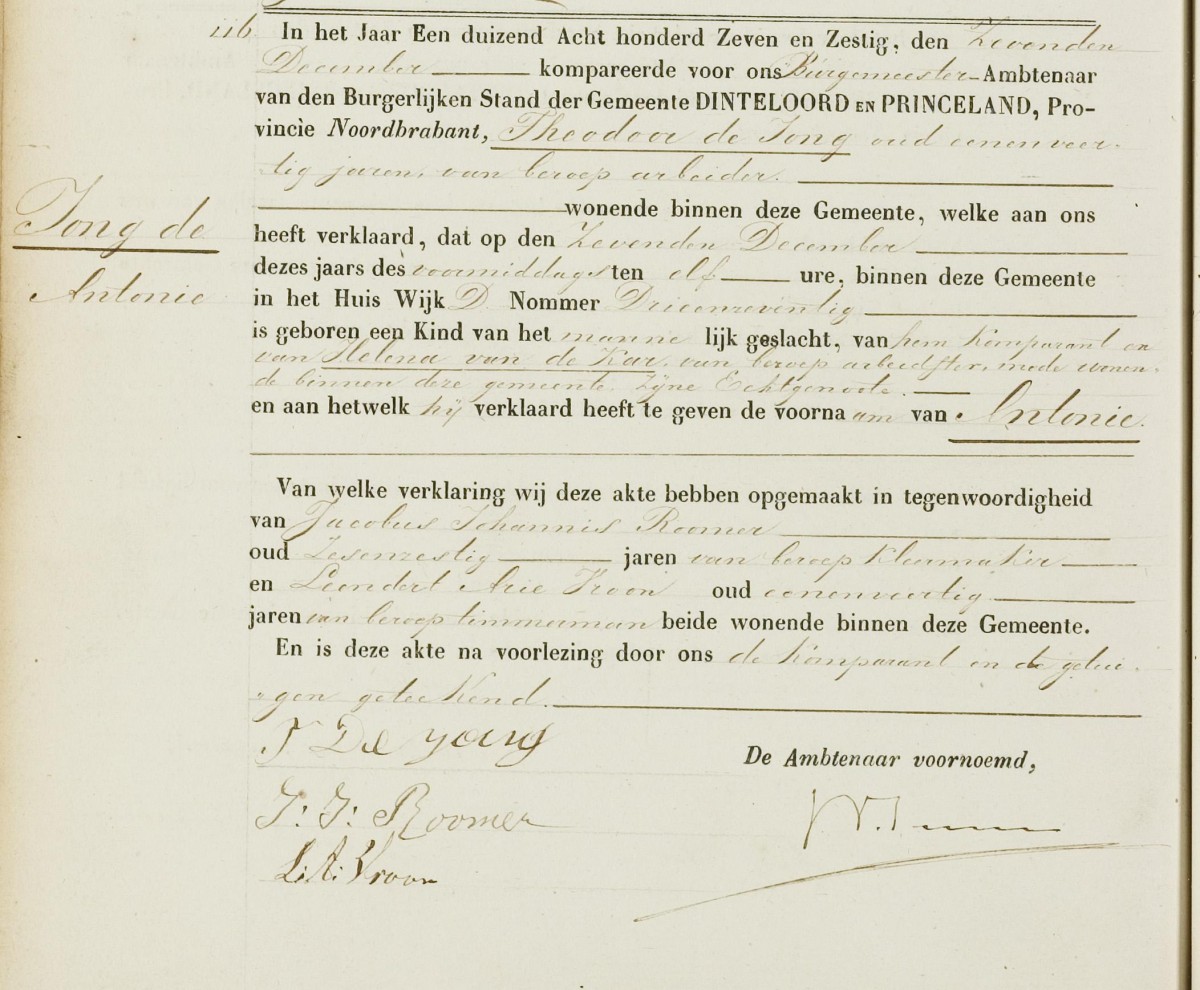 116. In het Jaar Een duizend Acht honderd Zeven en Zestig, den Zevenden
December kompareerde voor ons Burgemeester Ambtenaar
van den Burgerlijken Stand der Gemeente DINTELOORD EN PRINCELAND, Pro-
vincie Noordbrabant, Theodoor de Jong oud eenenveer-
tig jaren, van beroep arbeider.
wonende binnen deze Gemeente, welke aan ons
Jong de
heeft verklaard, dat op den Zevenden December
dezes jaars des voormiddags ten elf ure, binnen deze Gemeente
Antonie
in het Huis Wijk D. Nommer Drieenzeventig
is geboren een Kind van het manne lijk geslacht, van hem Komparant en
van Helena van de Kar, van beroep arbeidster, mede wonen-
de binnen deze gemeente, zijne Echtgenoote.
en aan hetwelk hij verklaard heeft te geven de voorna am van Antonie.
Van welke verklaring wij deze akte bebben opgemaakt in tegenwoordigheid
van Jacobus Johannis Roomer
oud Zesenzestig jaren van beroep Kleermaker
en Leendert Arie Vroon oud eenenveertig
jaren van beroep timmerman beide wonende binnen deze Gemeente.
En is deze akte na voorlezing door ons de Komparant en de getui-
gen geteekend.
T De yong
De Ambtenaar voornoemd,
J: J: Roomer
L: A: Vroon